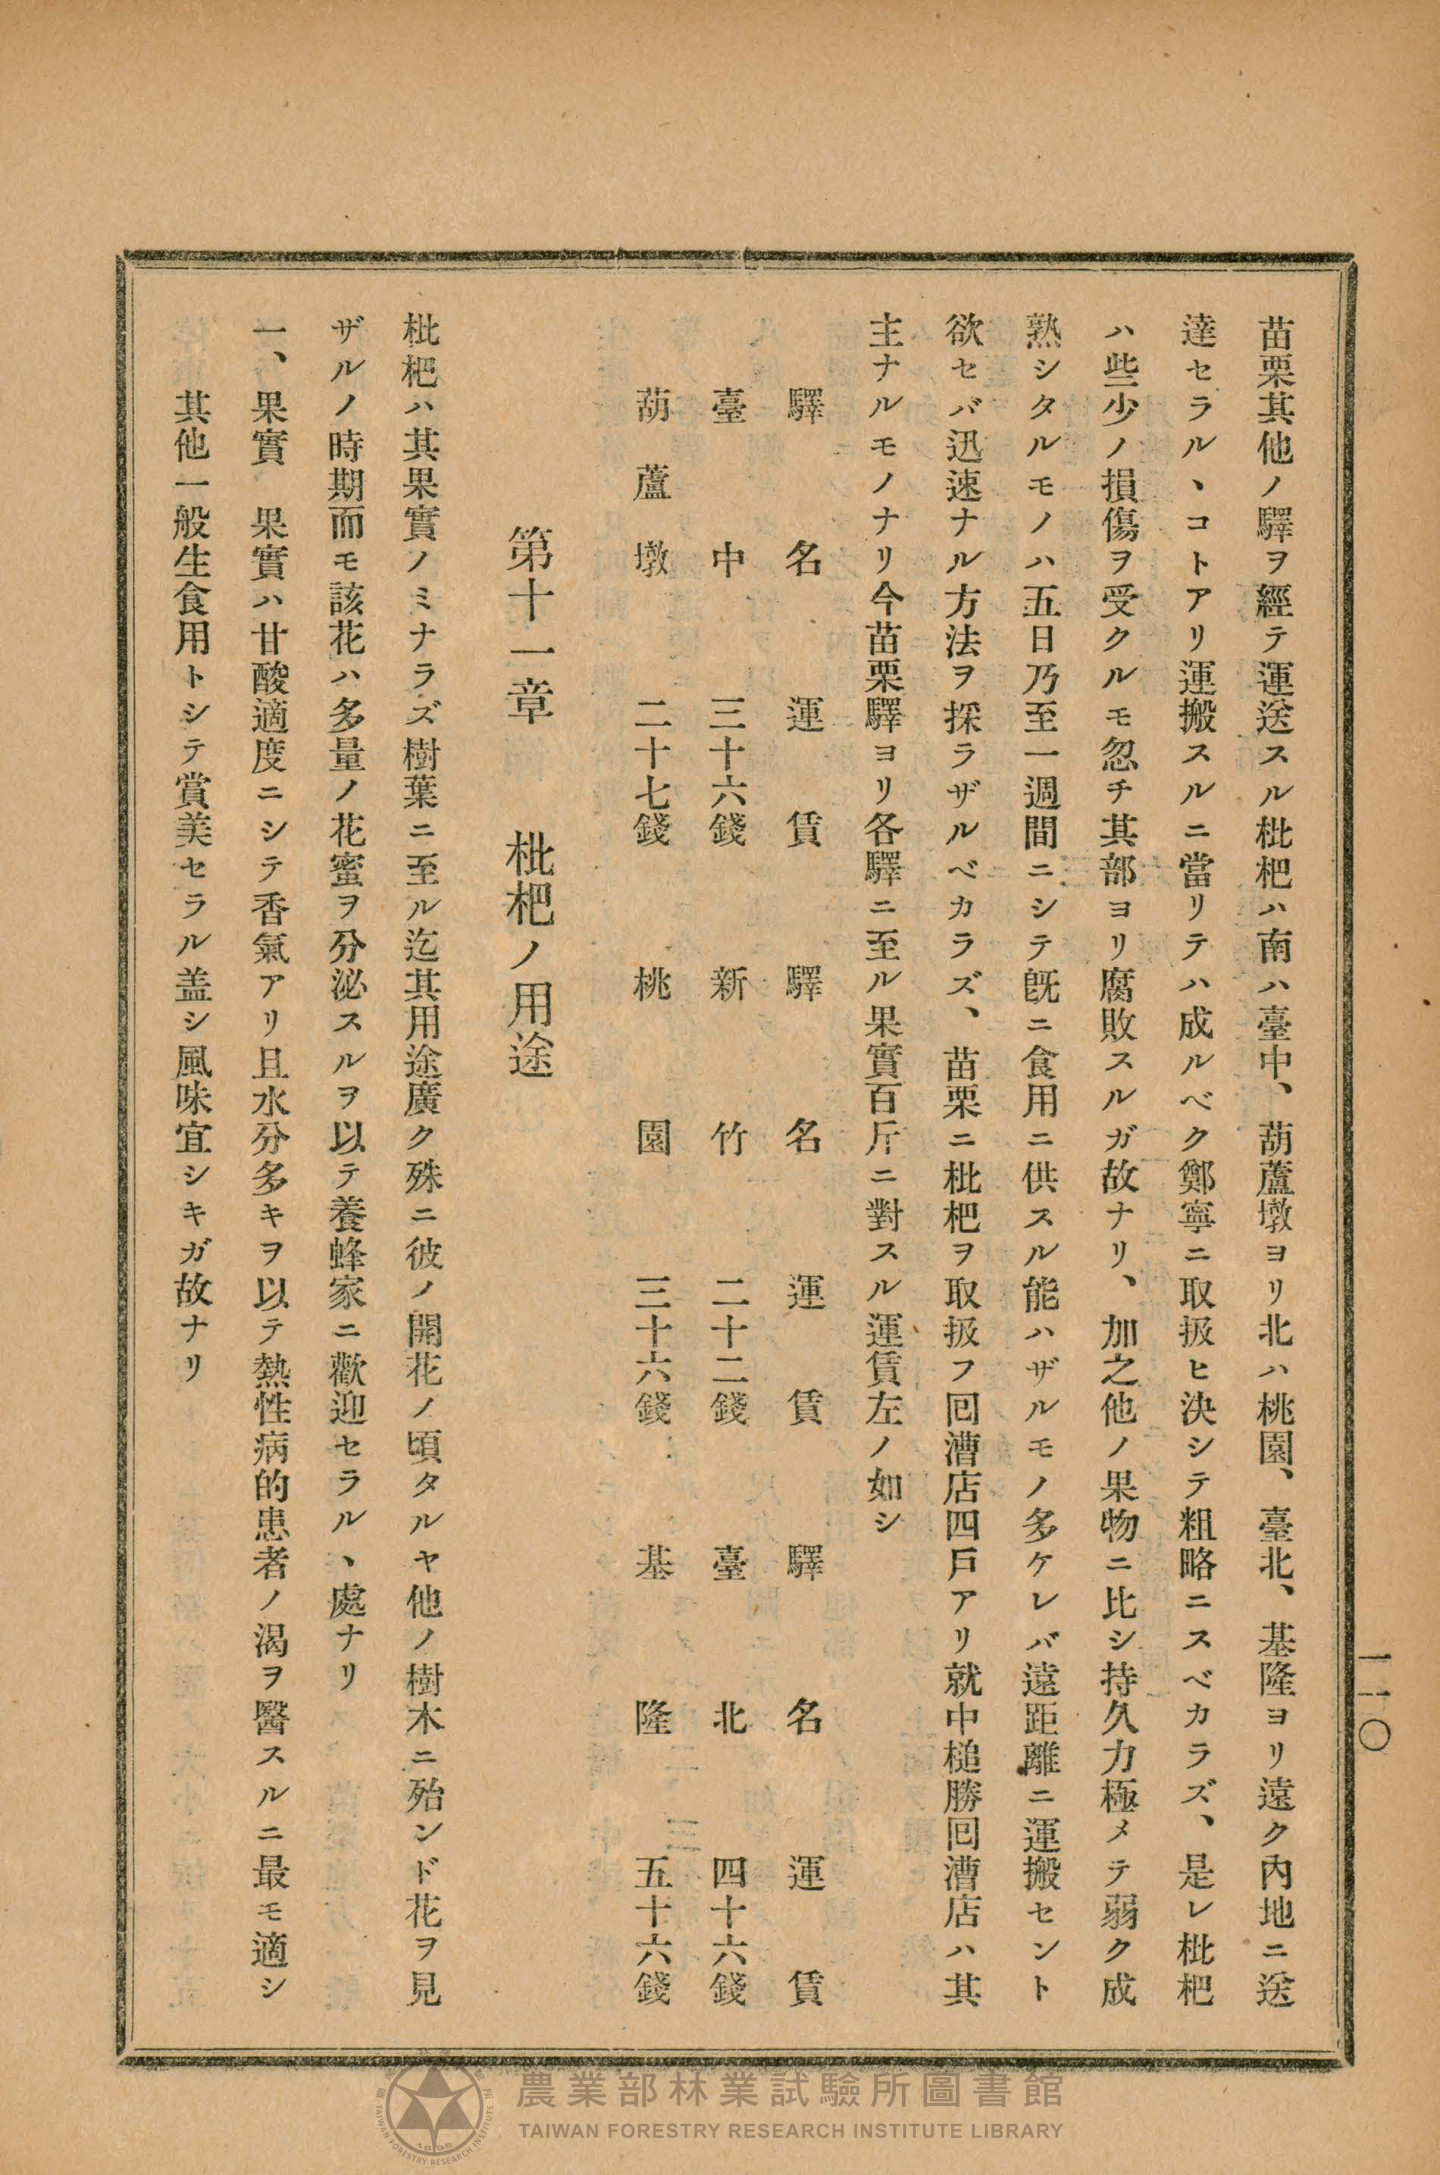 一一〇
苗栗其他ノ驛ヲ經テ運送スル枇杷ハ南ハ臺中、葫蘆墩ヨリ北ハ桃園、臺北、基隆ヨリ遠ク內地ニ送
達セラルヽコトアリ運搬スルニ當リテハ成ルベク鄭寧ニ取扱ヒ決シテ粗略ニスベカラズ、是レ枇杷
ハ些少ノ損傷ヲ受クルモ忽チ其部ヨリ腐敗スルガ故ナリ、加之他ノ果物ニ比シ持久力極メテ弱ク成
熟シタルモノハ五日乃至一週間ニシテ旣ニ食用ニ供スル能ハザルモノ多ケレバ遠距離ニ運搬セント
欲セバ迅速ナル方法ヲ採ラザルベカラズ、苗栗ニ枇杷ヲ取扱フ回漕店四戶アリ就中槌勝回漕店ハ其
主ナルモノナリ今苗栗驛ヨリ各驛ニ至ル果實百斤ニ對スル運賃左ノ如シ
驛名 運賃 驛名 運賃 驛名 運賃
臺中 三十六錢 新竹 二十二錢 臺北 四十六錢
葫蘆墩 二十七錢 桃園 三十六錢 基隆 五十六錢
第十一章 枇杷ノ用途
枇杷ハ其果實ノミナラズ樹葉ニ至ル迄其用途廣ク殊ニ彼ノ開花ノ頃タルヤ他ノ樹木ニ殆ンド花ヲ見
ザルノ時期而モ該花ハ多量ノ花蜜ヲ分泌スルヲ以テ養蜂家ニ歡迎セラルヽ處ナリ
一、果實 果實ハ甘酸適度ニシテ香氣アリ且水分多キヲ以テ熱性病的患者ノ渴ヲ醫スルニ最モ適シ
其他一般生食用トシテ賞美セラル盖シ風味宜シキガ故ナリ
農業部林業試驗所圖書館
TAIWAN FORESTRY RESEARCH INSTITUTE LIBRARY